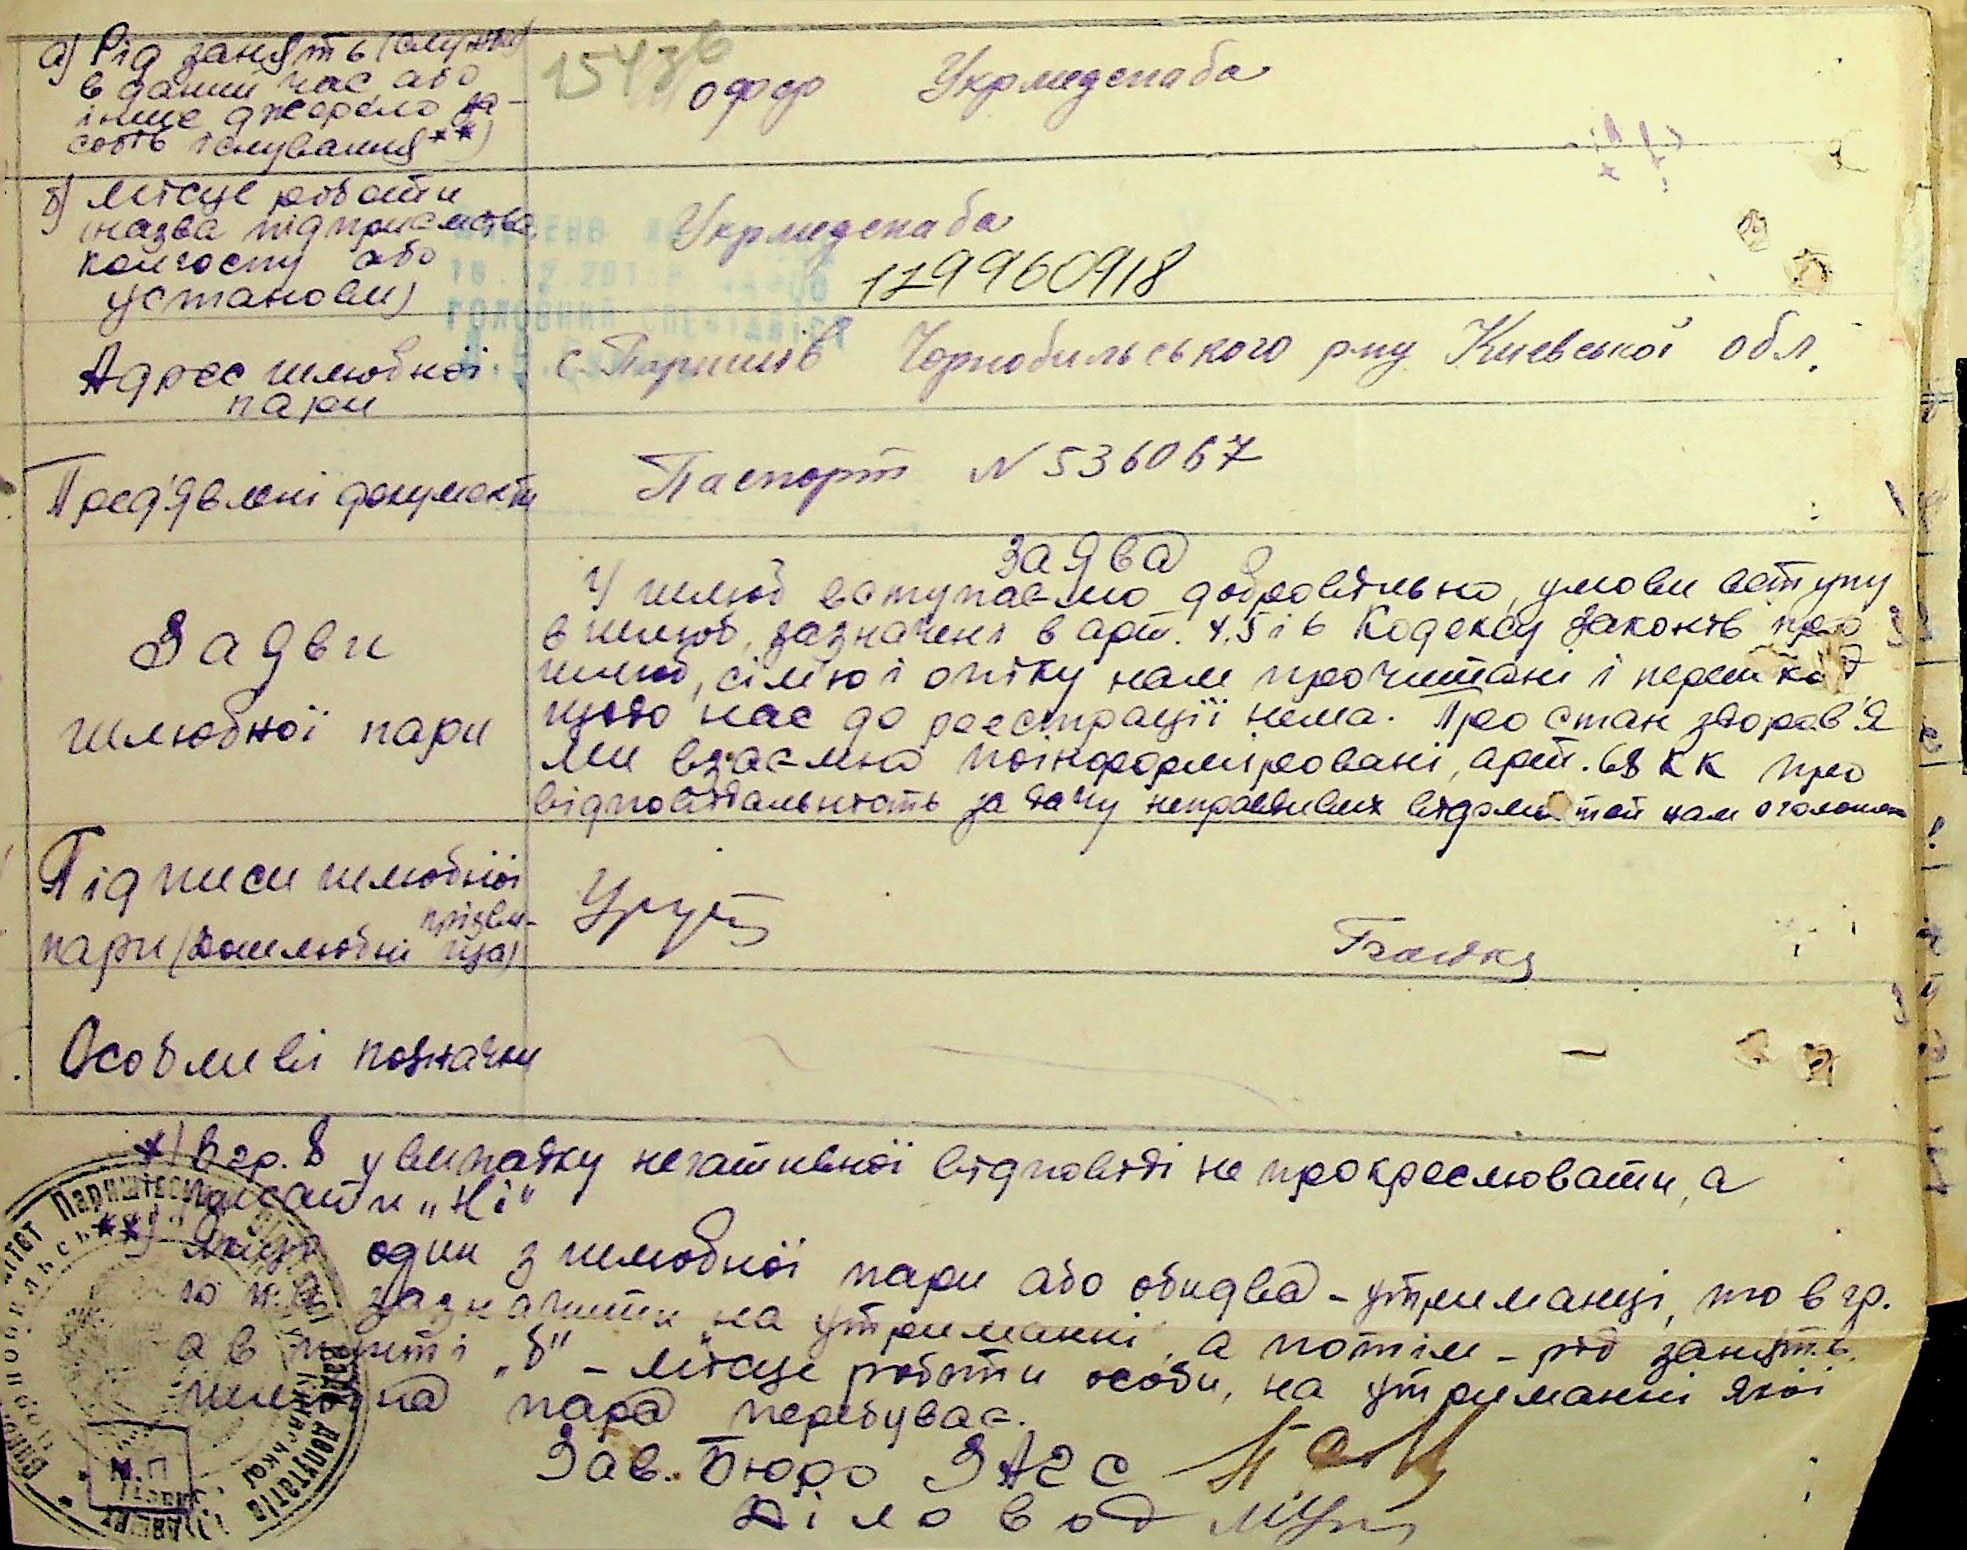 а) Рід занять (служби)
в даний час або
інше джерело за-
собів існування**)
офер Укрмедснаба
б) Місце роботи
(назва підприємства
колгоспу або
установи)
Укрмедснаба
179960918
Адрес шлюбної
пари
с. Паришів Чорнобильського р-ну Київської обл.
Пред'явлені документи
Паспорт N 536067
Заяви
шлюбної пари
Заява
У шлюб вступаємо добровільно, умови вступу
в шлюб, зазначені в арт. 4, 5 і 6 Кодексу законів про
шлюб, сім'ю і опіку нам прочитані і перешкод
щодо нас до реєстрації нема. Про стан здоров'я
ми взаємно поінформіровані, арт. 68 КК про
відповідальність за дачу неправдивих відомостей нам оголошено
Підписи шлюбної
пари (дошлюбні прізви-
ща)
Особливі позначки
–
*) В гр. 8 у випадку негативної відповіді не прокреслювати, а
писати „Ні"
**) Якщо один з шлюбної пари або обидва – утриманці, то в гр.
10 п. а зазначити „на утриманні", а потім – рід занять,
а в пункті „б" – місце роботи особи, на утриманні якої
шлюбна пара перебуває.
Зав. Бюро ЗАГС
Діловод
М.П.